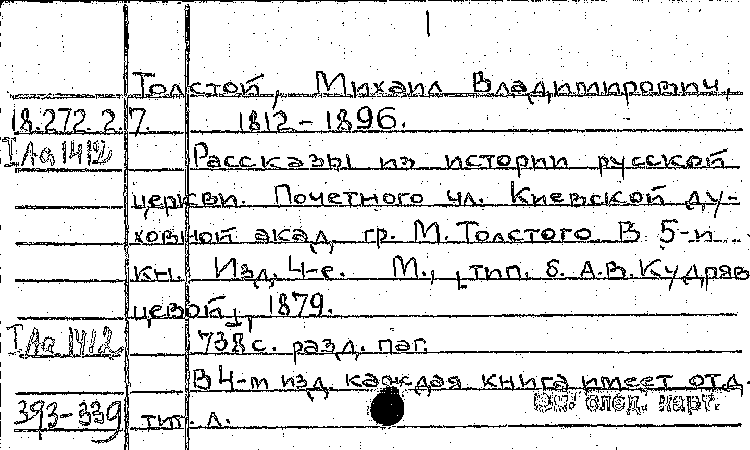 1
Толстой, Михаил Владимирович,
18.272.2.7. 1812-1896.
I Aa 1412 Рассказы из истории русской
церкви. Почетного чл. Киевской ду-
ховной акад. гр. М. Толстого В 5-и
кн. Изд. 4-е. М., [тип. б. А.В. Кудряв
цевой], 1879.
I Aa 1412 738 с. разд. паг.
В 4-м изд. каждая книга имеет отд.
393-339 тит. л. См. след. карт.